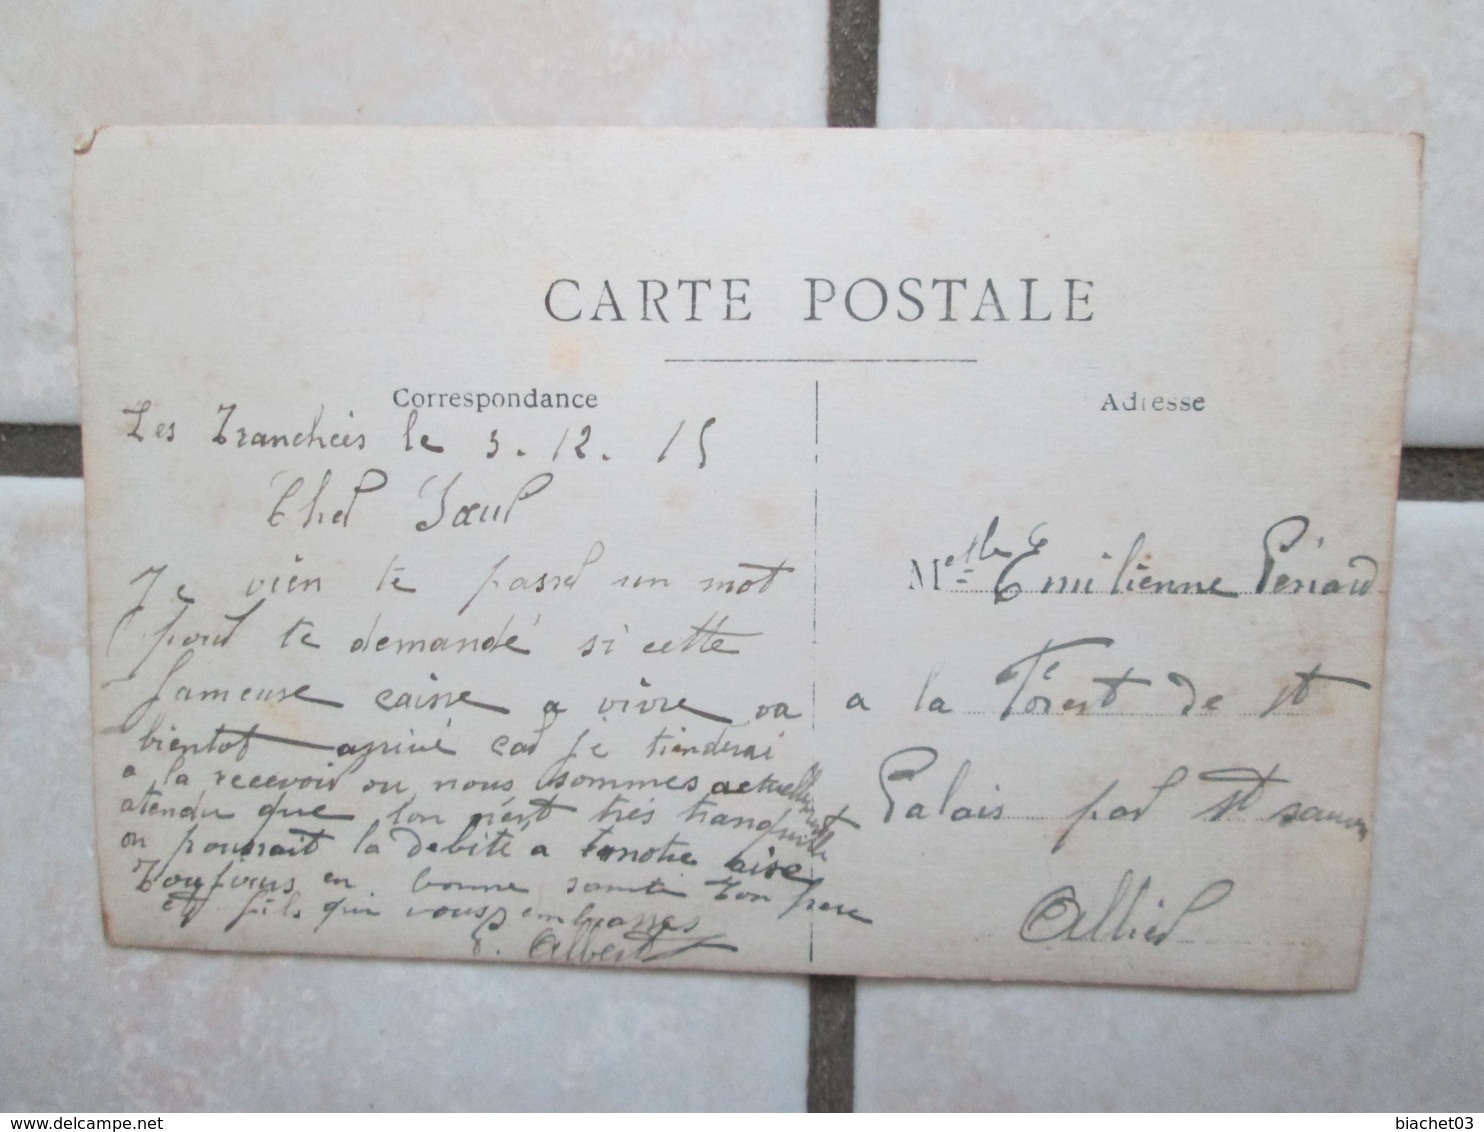 CARTE POSTALE
Correspondance
Les Tranchées le 3. 12. 15
Cher Sœur
Je vien te passer un mot
pour te demandé si cette
fameuse caisse a vivre va
bientot arrivé car je tienderai
a la recevoir ou nous sommes actuellement
atendu que lon n'est très tranquille
on pourrait la debité a notre aise
Toujours en bonne santé ton frere
et fils qui vous embrasses
P. Albert
Adresse
Melle Emilienne Périard
a la Forest de St
Palais par St sauv
Allier
biachet03